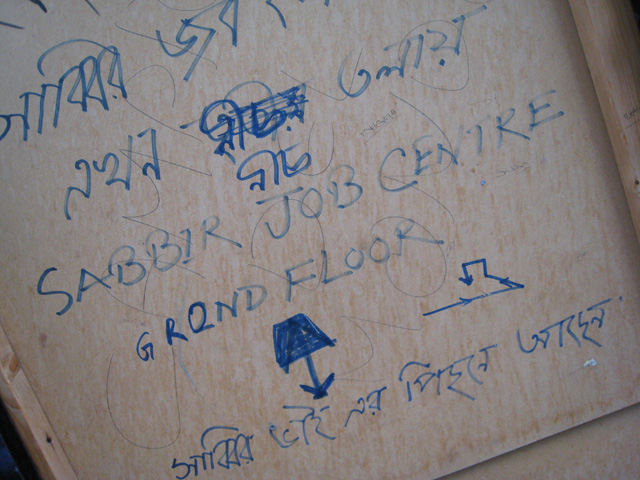 সাব্বির জব
এখন নীচ তলায়
SABBIR JOB CENTRE
GROND FLOOR
সাব্বির ভাই এর পিছনে আছেন